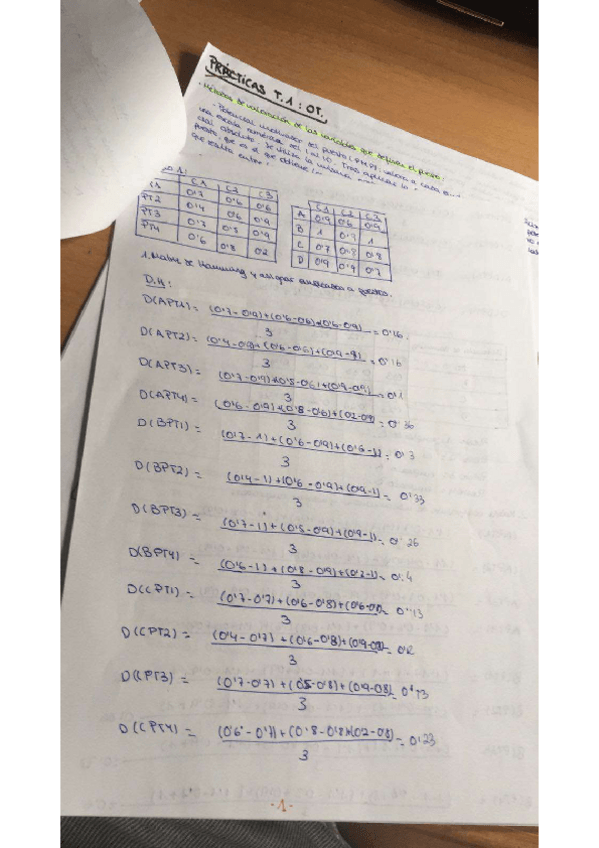 PRÁCTICAS T.1: OT.
Métodos de valoración de las variables que definen el puesto:
- Potencial motivador del puesto (PMP): valora a cada
una escala numérica del 1 al 10. Tras aplicar la
C1 C2 C3
0'7 0'6 0'6
PT2 0'4 0'6 0'9
PT3 0'7 0'5 0'9
PT4 0'6 0'8 0'2
C1 C2 C3
A 0'9 0'6 0'9
B 1 0'9 1
C 0'7 0'8 0'8
D 0'9 0'9 0'7
1. Matriz de Hamming y asignar empleados a puestos.
D.H:
D(APT1)= (0'7-0'9)+(0'6-0'6)+(0'6-0'9) = 0'16.
3
D(APT2)= (0'4-0'9)+(0'6-0'6)+(0'9-9) = 0'16
3
D(APT3)= (0'7-0'9)+(0'5-0'6)+(0'9-0'9) = 0'1
3
D(APT4)= (0'6-0'9)+(0'8-0'6)+(02-09) = 0'36
3
D(BPT1)= (0'7-1)+(0'6-0'9)+(0'6-1) = 0'3
3
D(BPT2)= (0'4-1)+(0'6-0'9)+(0'9-1) = 0'33
3
D(BPT3)= (0'7-1)+(0'5-0'9)+(0'9-1) = 0'26
3
D(BPT4)= (0'6-1)+(0'8-0'9)+(0'2-1) = 0'4
3
D(CPT1)= (0'7-0'7)+(0'6-0'8)+(0'6-0'8) = 0'13
3
D(CPT2)= (0'4-0'7)+(0'6-0'8)+(0'9-08) = 0'2
3
D(CPT3)= (0'7-0'7)+(0'5-0'8)+(0'9-0'8) = 0'13
3
D(CPT4)= (0'6-0'7)+(0'8-0'8)+(02-0'8) = 0'23
3
-1-